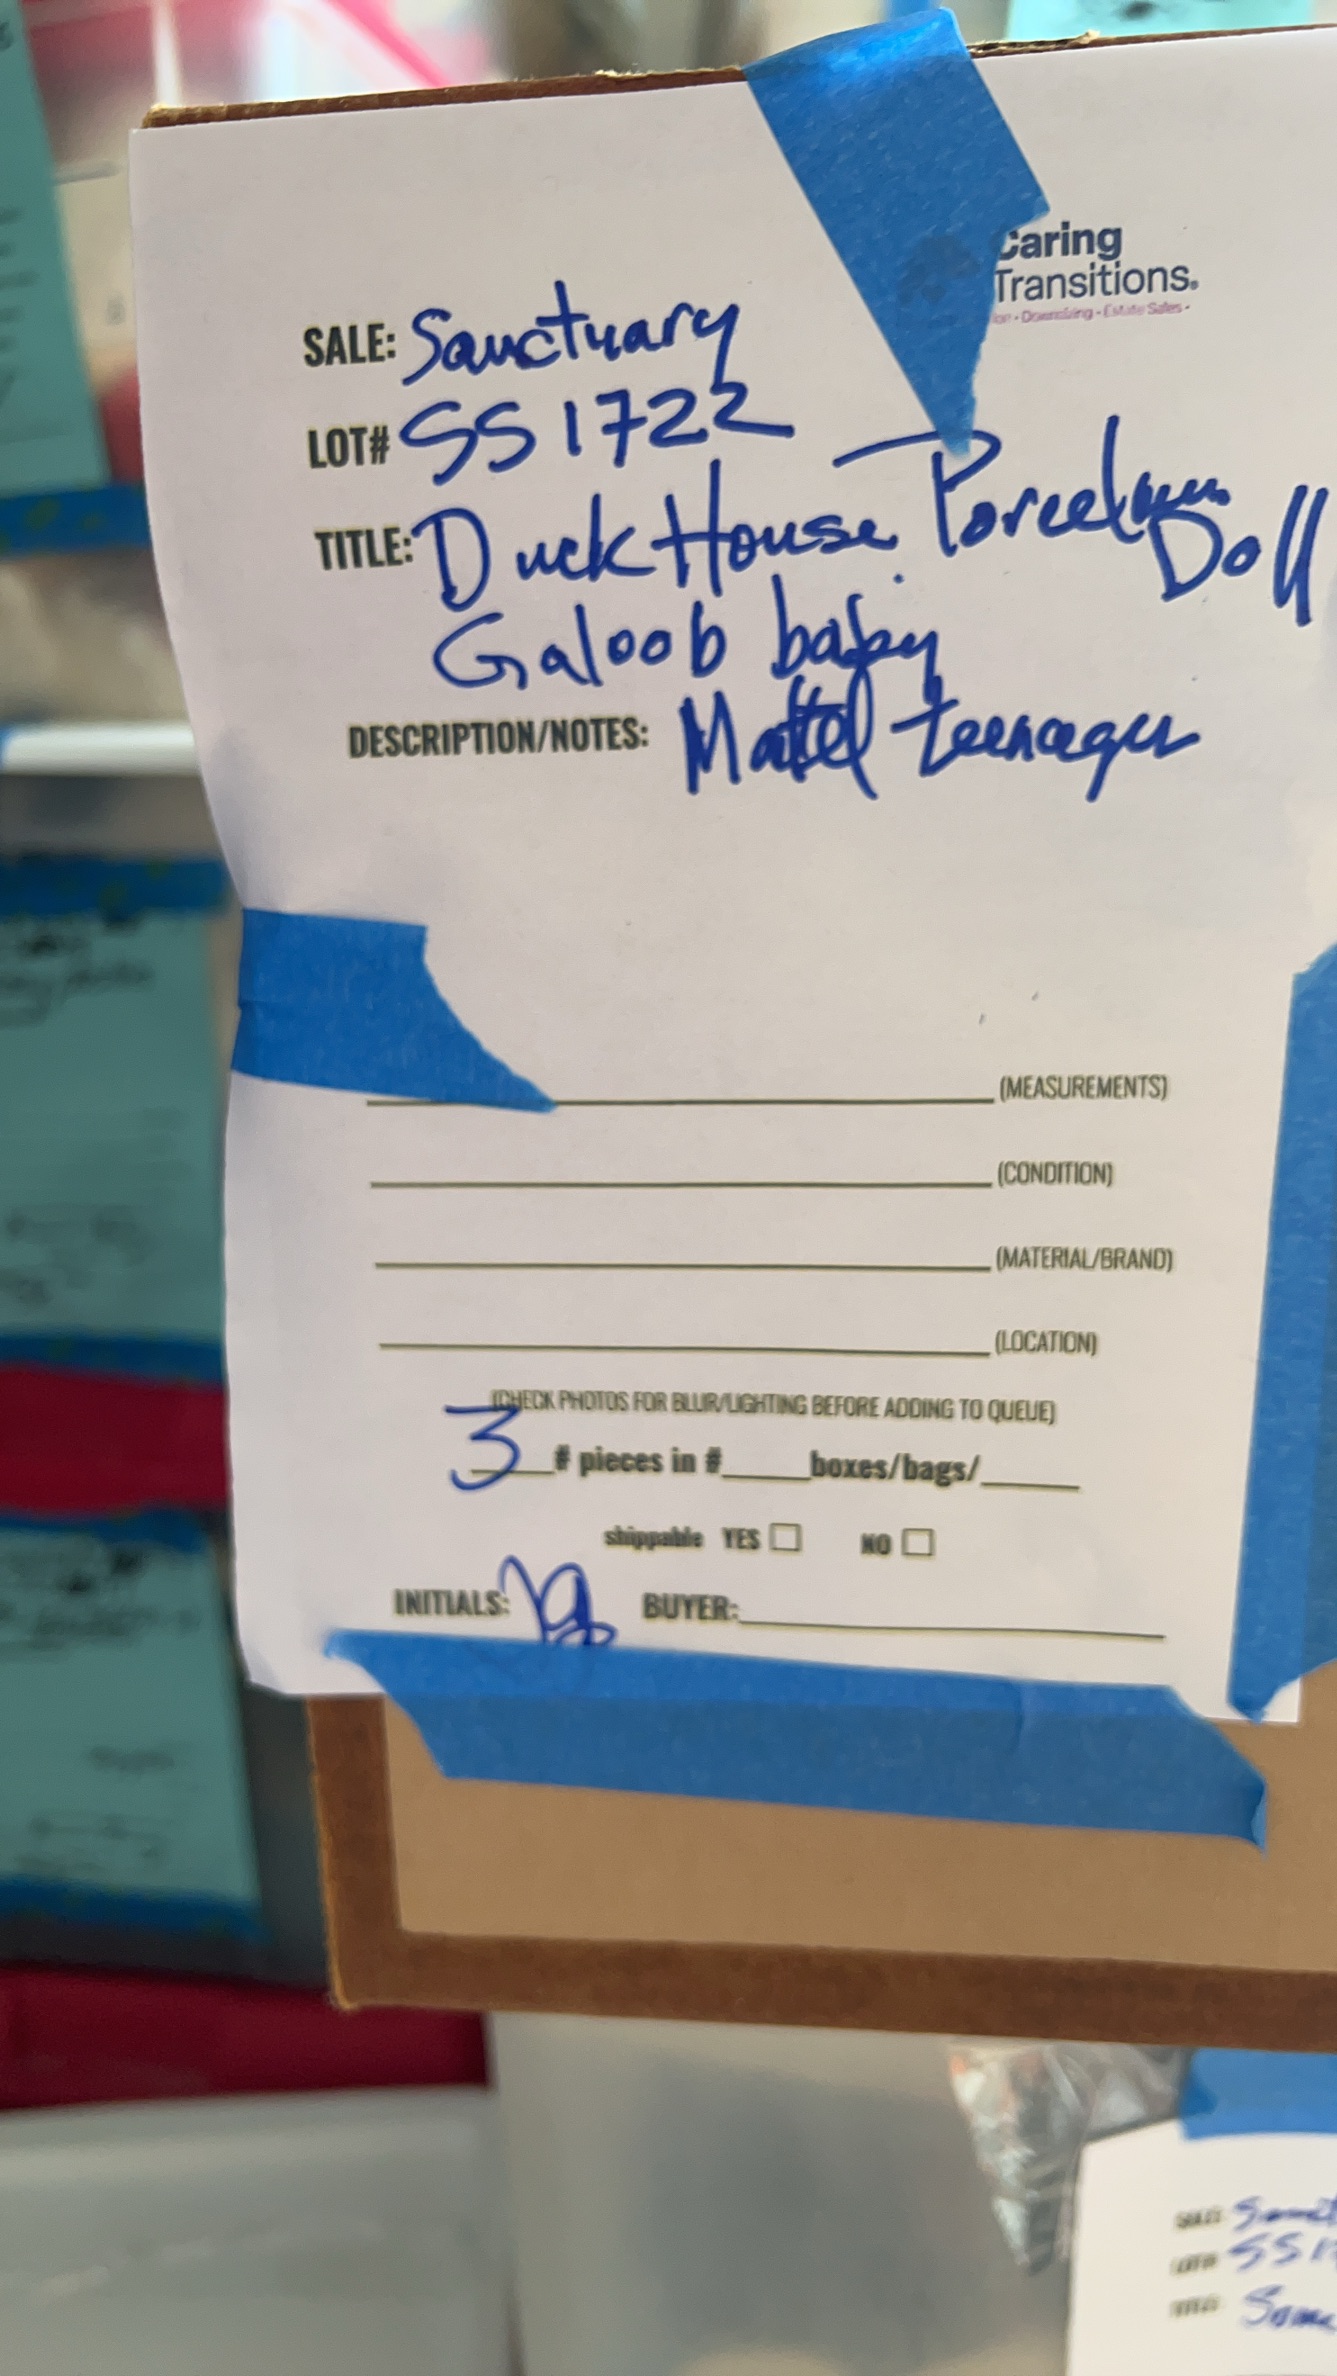 Caring
Transitions®
- Downsizing - Estate Sales -
SALE: Sanctuary
LOT# SS1722
TITLE: Duck House Porcelain Doll
Galoob baby
DESCRIPTION/NOTES: Mattel teenager
(MEASUREMENTS)
(CONDITION)
(MATERIAL/BRAND)
(LOCATION)
(CHECK PHOTOS FOR BLUR/LIGHTING BEFORE ADDING TO QUEUE)
3 # pieces in #_____boxes/bags/_____
shippable YES ☐ NO ☐
INITIALS: BUYER:
SALE:
LOT# SS1
TITLE: